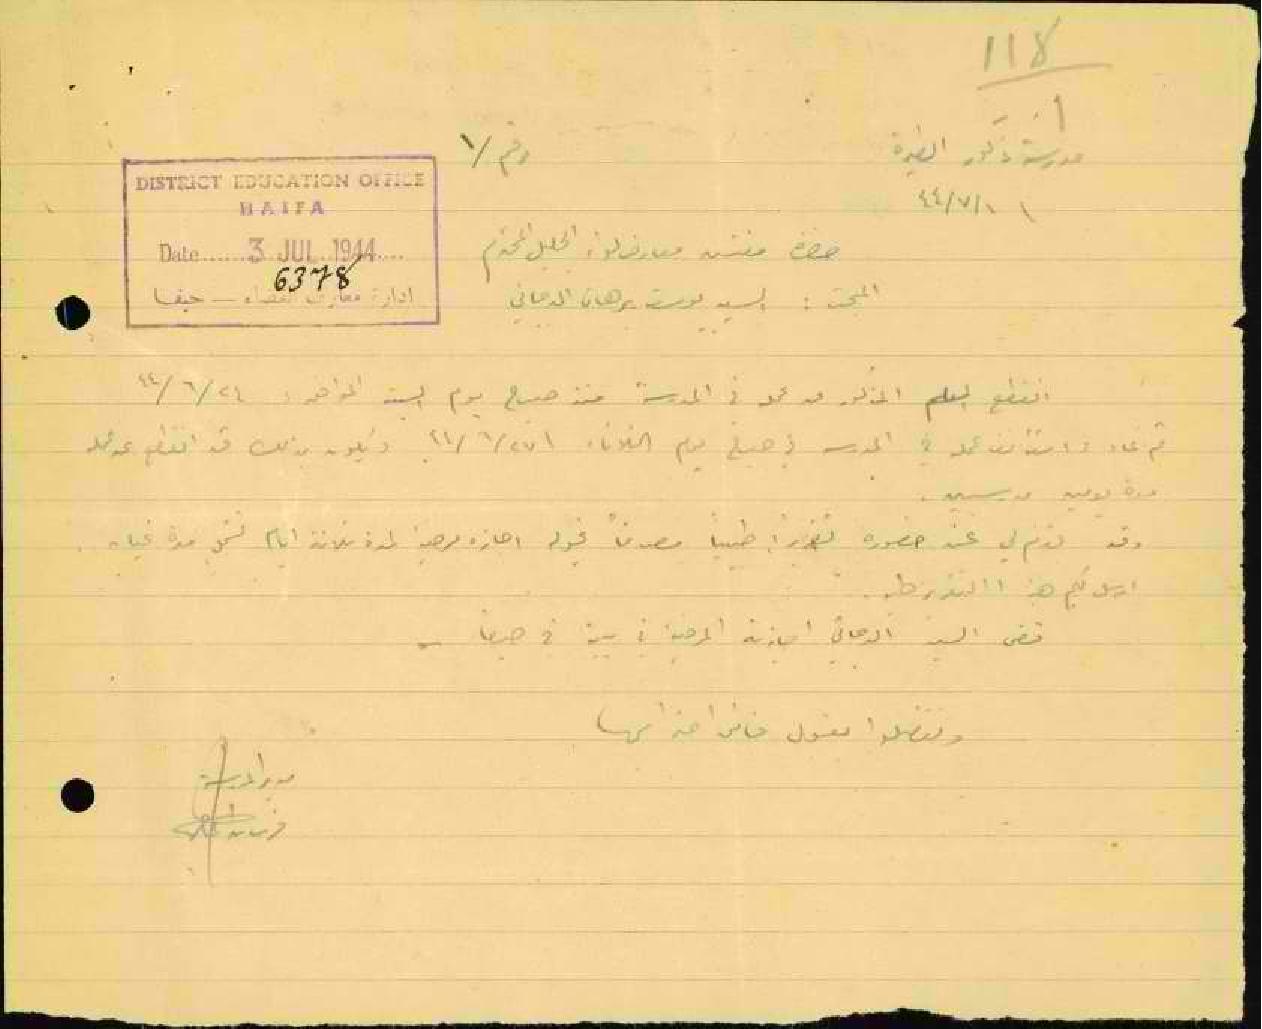 118
مدرسة ذكور الطيرة
رقم /١
٤٤/٧/١
DISTRICT EDUCATION OFFICE
HAIFA
Date 3 JUL 1944
6378
ادارة معارف القضاء — حيفا
حضرة مفتش معارف لواء الجليل المحترم
المبحث : السيد يوسف برهان الدجاني
انقطع المعلم المذكور عن عمله في المدرسة منذ صباح يوم السبت الموافق ٤٤/٦/٢٤
ثم عاد واستأنف عمله في المدرسة في صباح يوم الثلاثاء ٤٤/٦/٢٧ ويكون بذلك قد انقطع عن عمله
مدة يومين مدرسيين .
وقد قدم لي عند حضوره تقريراً طبياً مصدقاً يخوله اجازة مرضية لمدة ثلاثة ايام تشمل مدة غيابه .
ارسل لكم هذا التقرير طيه .
قضى السيد الدجاني اجازته المرضية في بيته في حيفا
وتفضلوا بقبول فائق احترامي
مدير المدرسة